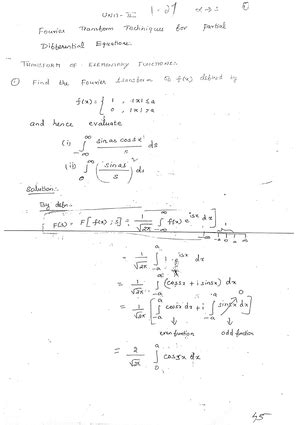 UNIT-II
Fourier Transform Techniques for Partial
Differential Equations.
TRANSFORM OF ELEMENTARY FUNCTIONS
① Find the Fourier transform of f(x) defined by
f(x) = { 1 , |x| ≤ a
0 , |x| > a
and hence evaluate
(i) ∫_{-∞}^{∞} (sin as cos sx)/s ds
(ii) ∫_0^∞ (sin as/s)² ds
Solution:-
By defn:-
F(s) = F[f(x) ; s] = 1/√2π ∫_{-∞}^{∞} f(x) e^{isx} dx
= 1/√2π ∫_{-a}^{a} 1 . e^{isx} dx
= 1/√2π ∫_{-a}^{a} (cos sx + i sin sx) dx
= 1/√2π [ ∫_{-a}^{a} cos sx dx + i ∫_{-a}^{a} sin sx dx ] 0
even function odd function
= 2/√2π ∫_0^a cos sx dx
45